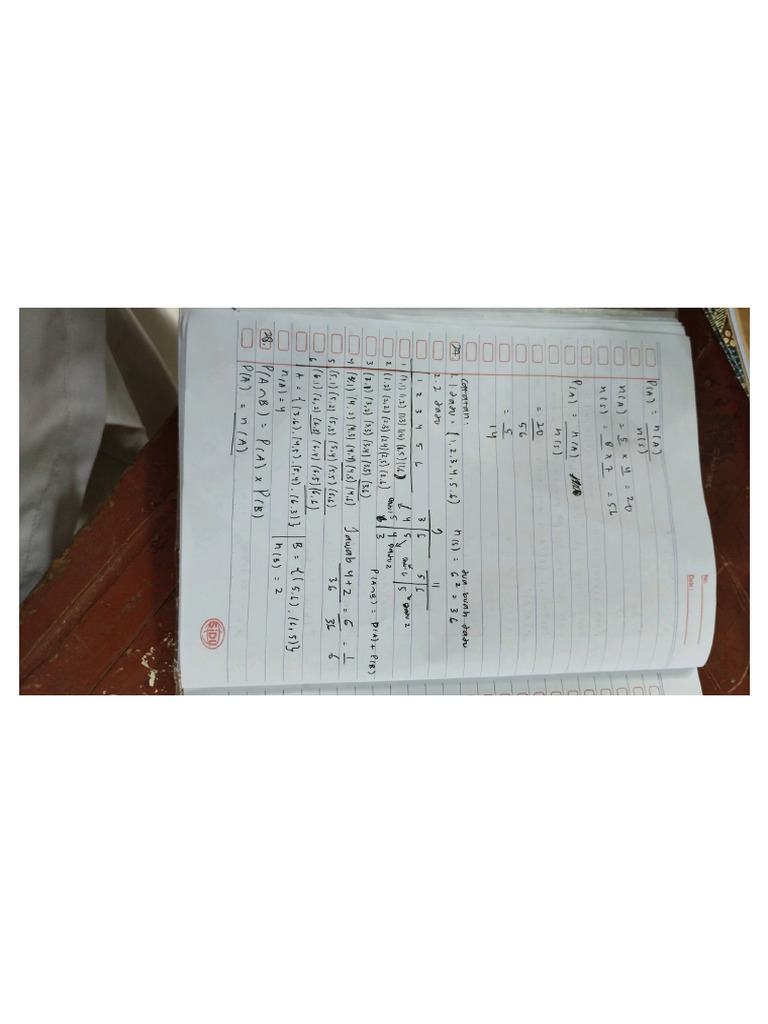 No.
Date:
P(A) = n(A)
n(s)
n(A) = 5 x 4 = 20
n(s) = 8 x 7 = 56
P(A) = n(A)
n(s)
= 20
56
= 5
14
27. Catatan:
2. 1 dadu = (1,2,3,4,5,6) n(s) = 6² = 36
2. 2 dadu
9 11
3 6 5 6
1 2 3 4 5 6
4 5 6 5
5 4 dadu 2
6 3
1 (1,1) (1,2) (1,3) (1,4) (1,5) (1,6)
2 (2,1) (2,2) (2,3) (2,4) (2,5) (2,6)
3 (3,1) (3,2) (3,3) (3,4) (3,5) (3,6) P(A∩B) = P(A) + P(B)
4 (4,1) (4,2) (4,3) (4,4) (4,5) (4,6) Jawab 4 + 2 = 6 = 1
5 (5,1) (5,2) (5,3) (5,4) (5,5) (5,6) 36 36 6
6 (6,1) (6,2) (6,3) (6,4) (6,5) (6,6)
A = {(3,6), (4,5), (5,4), (6,3)} B = {(5,6), (6,5)}
n(A) = 4 n(B) = 2
28. P(A∩B) = P(A) x P(B)
P(A) = n(A)
SiDU